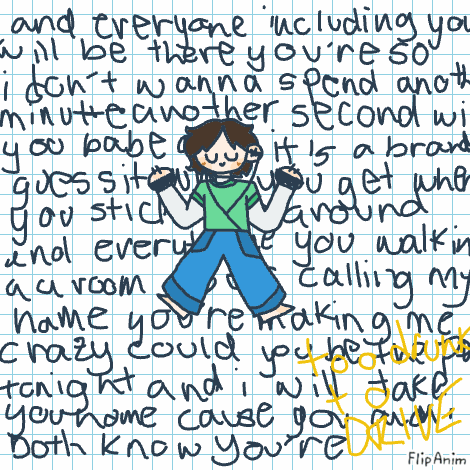 and everyone including you
will be there you're so
i don't wanna spend anoth
minutte another second wi
you babe it is a brand
guess it you get when
you stick around
and every you walkin
a a room calling my
name you're making me
crazy could you be the
tonight and i will take
you home cause you and i
both know you're
too drunk
to
DRIVE
FlipAnim